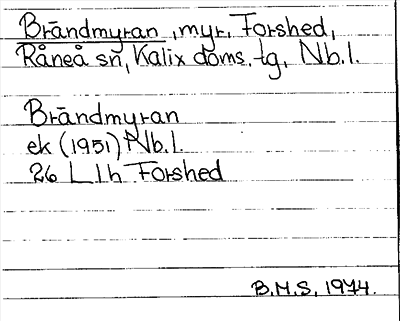 Brändmyran, myr, Forshed,
Råneå sn, Kalix doms. tg, Nb.l.
Brändmyran
ek (1951) Nb.l.
26 L l h Forshed
B.M.S, 1974.